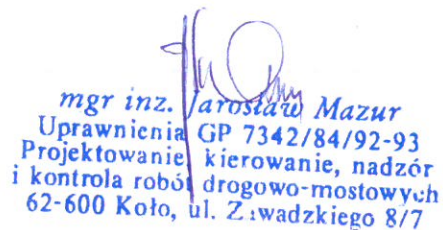 mgr inz. Jarosław Mazur
Uprawnienia GP 7342/84/92-93
Projektowanie, kierowanie, nadzór
i kontrola robót drogowo-mostowych
62-600 Koło, ul. Zawadzkiego 8/7